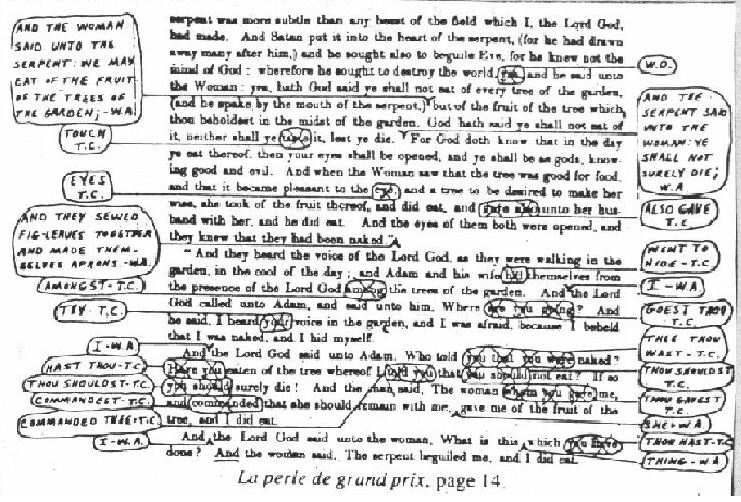 AND THE WOMAN
SAID UNTO THE
SERPENT: WE MAY
EAT OF THE FRUIT
OF THE TREES OF
THE GARDEN; -W.A.
TOUCH
T.C.
EYES
T.C.
AND THEY SEWED
FIG-LEAVES TOGETHER
AND MADE THEM-
SELVES APRONS. -W.A.
AMONGST - T.C.
THY - T.C.
I - W.A
HAST THOU - T.C.
THOU SHOULDST - T.C.
COMMANDEST - T.C.
COMMANDED THEE - T.C.
I - W.A.
serpent was more subtle than any beast of the field which I, the Lord God,
had made. And Satan put it into the heart of the serpent, (for he had drawn
away many after him,) and he sought also to beguile Eve, for he knew not the
mind of God: wherefore he sought to destroy the world, and he said unto
the Woman: yea, hath God said ye shall not eat of every tree of the garden,
(and he spake by the mouth of the serpent,) but of the fruit of the tree which
thou beholdest in the midst of the garden. God hath said ye shall not eat of
it, neither shall ye it, lest ye die. For God doth know that in the day
ye eat thereof, then your eyes shall be opened, and ye shall be as gods, know-
ing good and evil. And when the Woman saw that the tree was good for food,
and that it became pleasant to the eye, and a tree to be desired to make her
wise, she took of the fruit thereof, and did eat, and unto her hus-
band with her, and he did eat. And the eyes of them both were opened, and
they knew that they had been naked.
" And they heard the voice of the Lord God, as they were walking in the
garden, in the cool of the day; and Adam and his wife themselves from
the presence of the Lord God among the trees of the garden. And the Lord
God called unto Adam, and said unto him, Where are you going? And
he said, I heard your voice in the garden, and I was afraid, because I beheld
that I was naked, and I hid myself.
And the Lord God said unto Adam, Who told you that you were naked?
Have you eaten of the tree whereof I told you that you should not eat? If so
you should surely die! And the man said, The woman whom you gave me,
and commanded that she should remain with me, gave me of the fruit of the
tree, and I did eat.
And the Lord God said unto the woman, What is this which you have
done? And the woman said, The serpent beguiled me, and I did eat.
W.O.
AND THE
SERPENT SAID
UNTO THE
WOMAN: YE
SHALL NOT
SURELY DIE;
W.A
ALSO GAVE
T.C
WENT TO
HIDE - T.C
I - W.A
GOEST THOU
T.C.
THEE THOU
WAST - T.C.
THOU SHOULDST
T.C.
THOU GAVEST
T.C
SHE - W.A
THOU HAST - T.C
THING - W.A
La perle de grand prix, page 14.